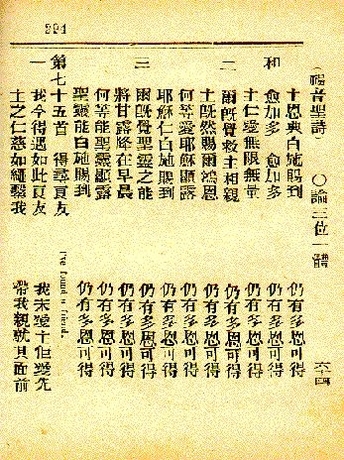 294
(福音聖詩) 〇論三位一體 六十四
主恩典白施賜到 仍有多恩可得
和 愈加多 愈加多 仍有多恩可得
主仁愛無限無量 仍有多恩可得
二 爾旣覺救主相親 仍有多恩可得
主旣然賜爾鴻恩 仍有多恩可得
何等愛耶穌顯露 仍有多恩可得
耶穌仁白地賜到 仍有多恩可得
三 爾旣覺聖靈之能 仍有多恩可得
將甘露降在早晨 仍有多恩可得
何等能聖靈顯露 仍有多恩可得
聖靈能白地賜到 仍有多恩可得
第七十五首 得尋良友 I've found a friend.
一 我今得遇如此良友 我未愛主但愛先
主之仁慈如繩繫我 帶我親就其面前